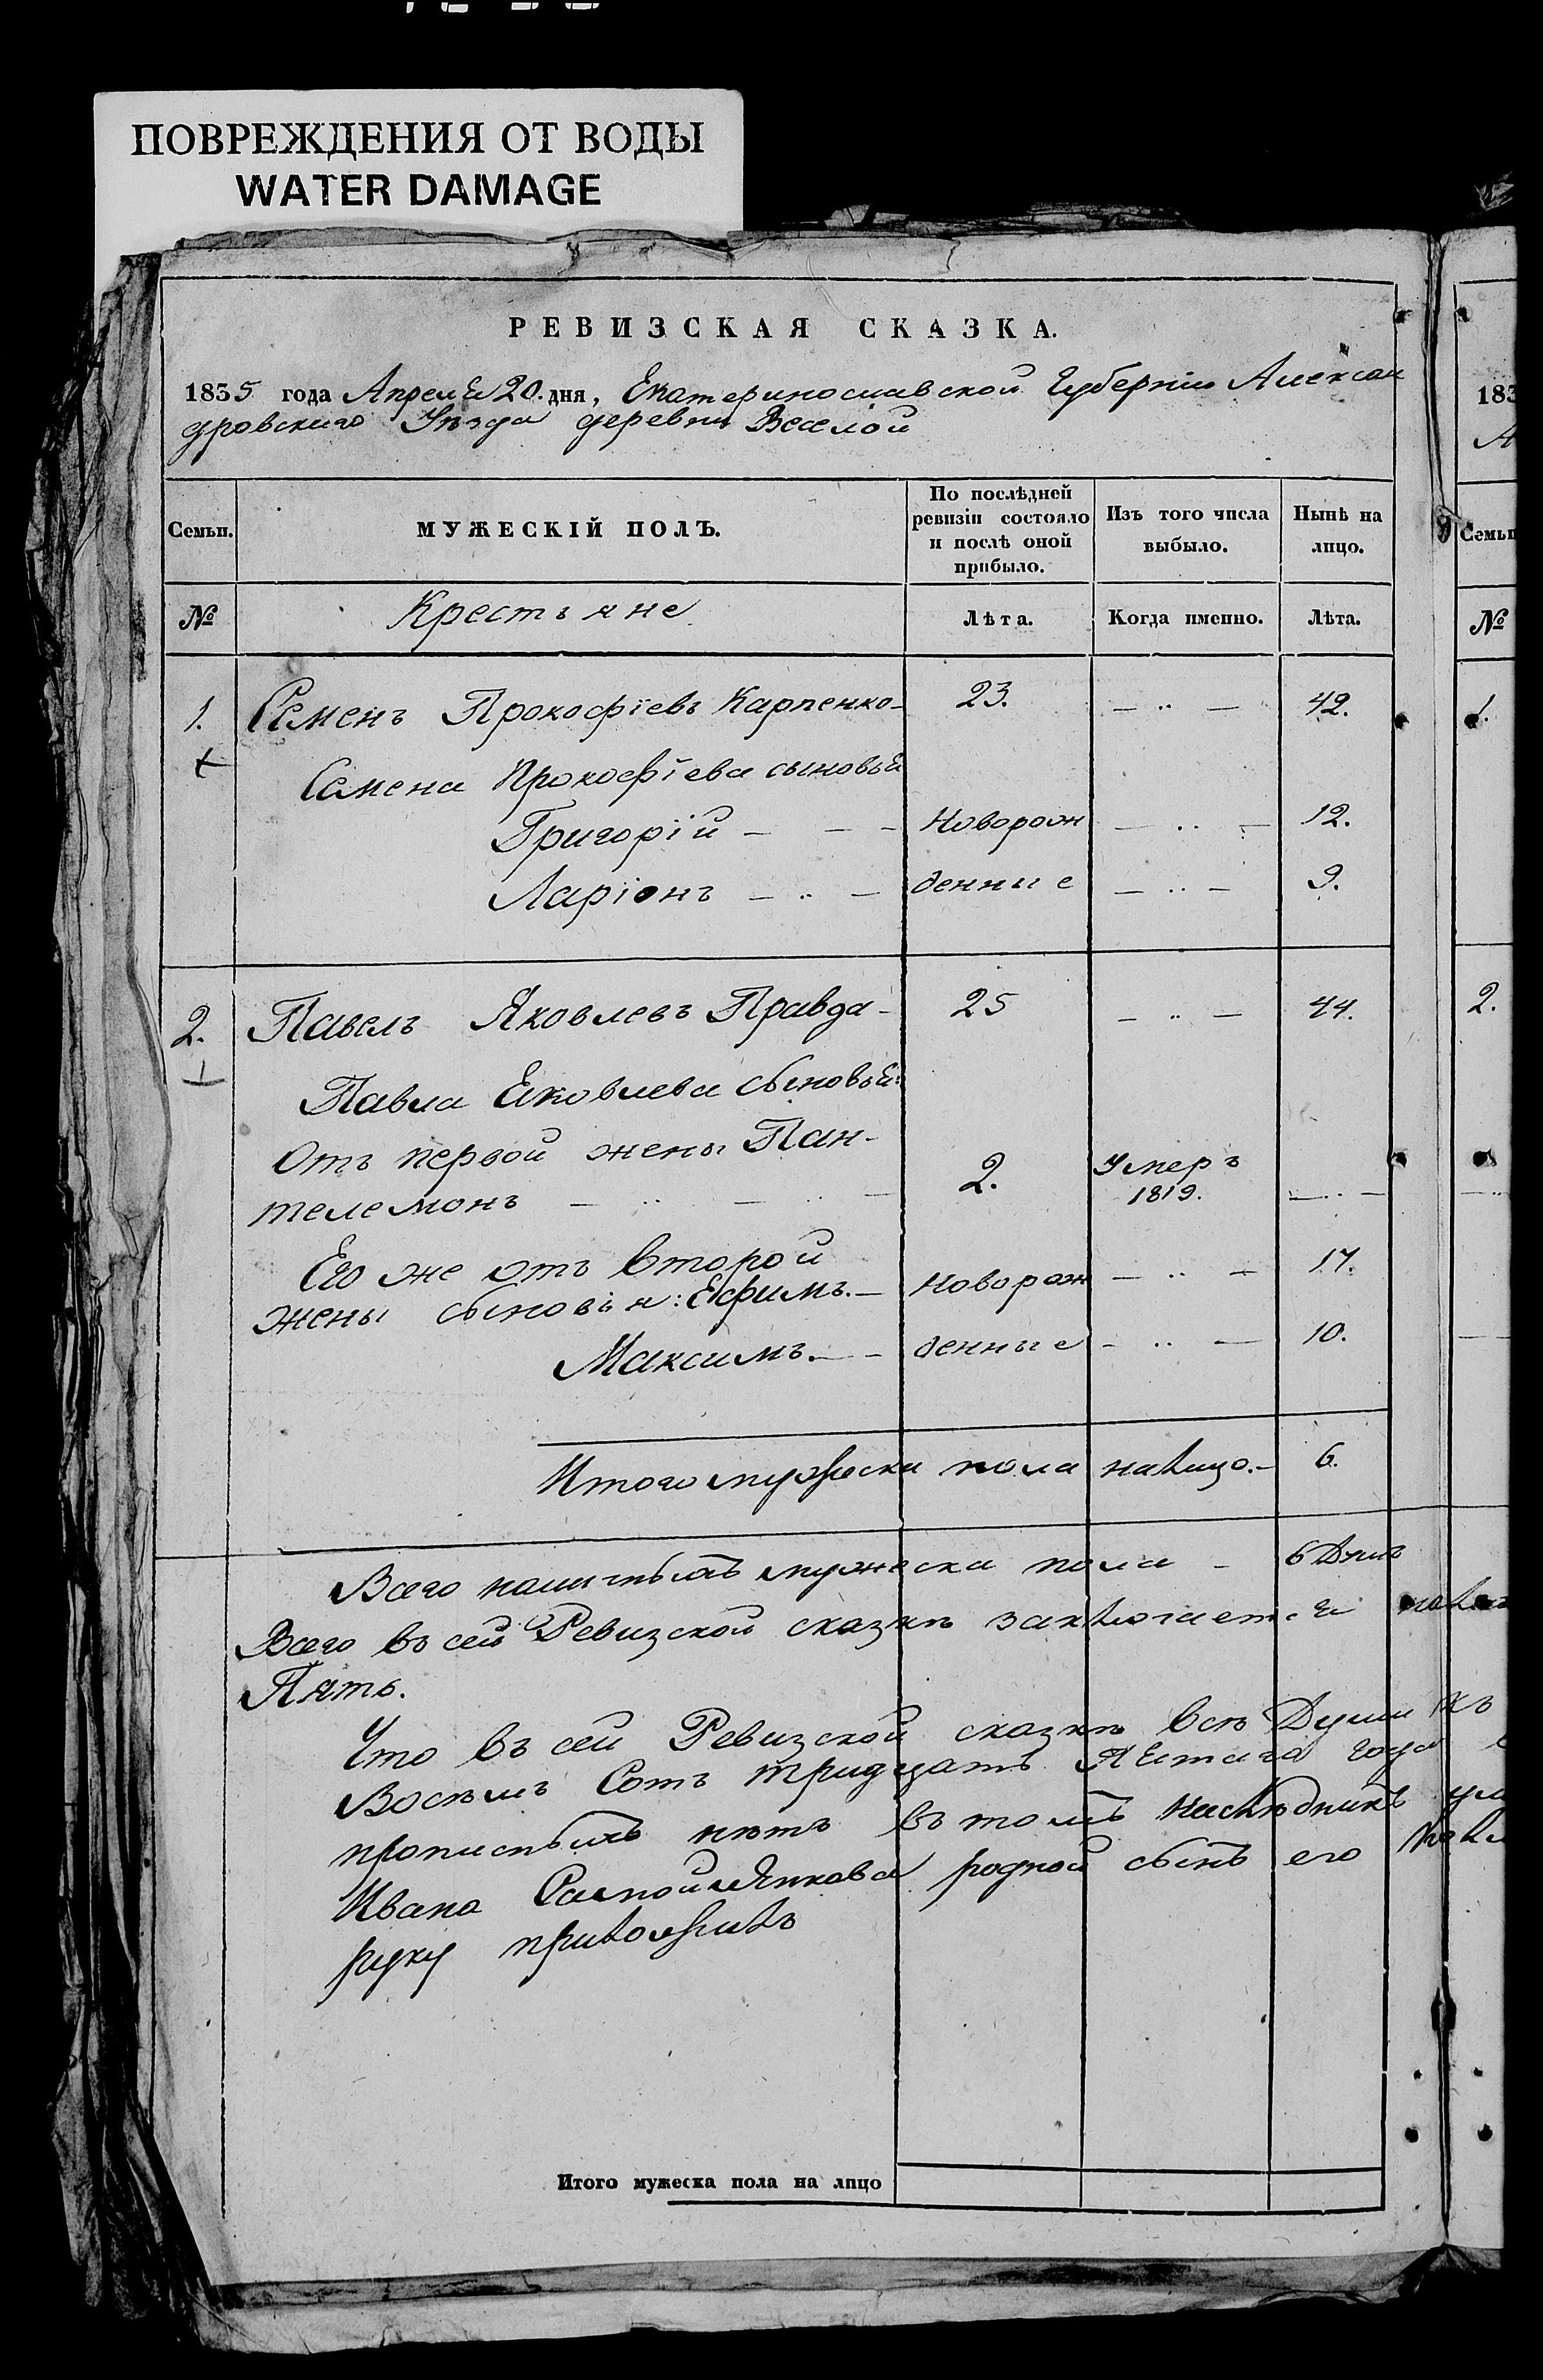 ПОВРЕЖДЕНИЯ ОТ ВОДЫ
WATER DAMAGE
РЕВИЗСКАЯ СКАЗКА.
1835 года Апреля 20. дня, Екатеринославской Губернiи Алексан
дровскаго Уѣзда деревни Веселой
183
Семьи.
МУЖЕСКIЙ ПОЛЪ.
По послѣдней ревизiи состояло и послѣ оной прибыло.
Изъ того числа выбыло.
Нынѣ на лицо.
Семьи
№ Крестьяне Лѣта. Когда именно. Лѣта. №
1. Семенъ Прокофiевъ Карпенко 23. — „ — 42. 1.
Семена Прокофiева сыновья
Григорiй — — — Новорож — „ — 12.
Ларiонъ — „ — денные — „ — 9.
2. Павелъ Яковлевъ Правда 25 — „ — 44. 2.
Павла Яковлева сыновья:
Отъ первой жены Пан-
телемонъ — „ — „ — 2. Умеръ 1819. — „ —
Его же отъ второй
жены сыновья: Ефимъ. — новорож — „ — 17.
Максимъ. — — денные — „ — 10.
Итого мужеска пола налицо. — 6.
Всего мужеска пола — 6
Всего въ сей Ревизской сказкѣ заключается
Пять.
Что въ сей Ревизской сказкѣ всѣ Души
Восемъ Сотъ тридцать года
нѣтъ въ томъ наслѣдникъ
Ивана родной сынъ его
руку приложилъ
Итого мужеска пола на лицо